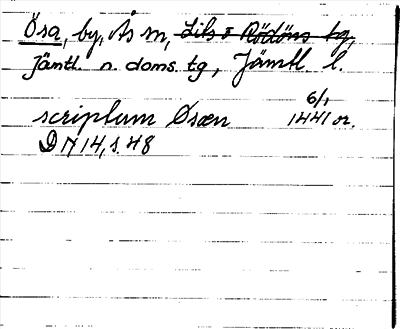 Ösa, by, Ås sn, Lits o Rödöns tg,
Jämtl. n. doms. tg, Jämtl l.
6/1
scriptum Øsæn 1441 or.
DN 14, s. 48